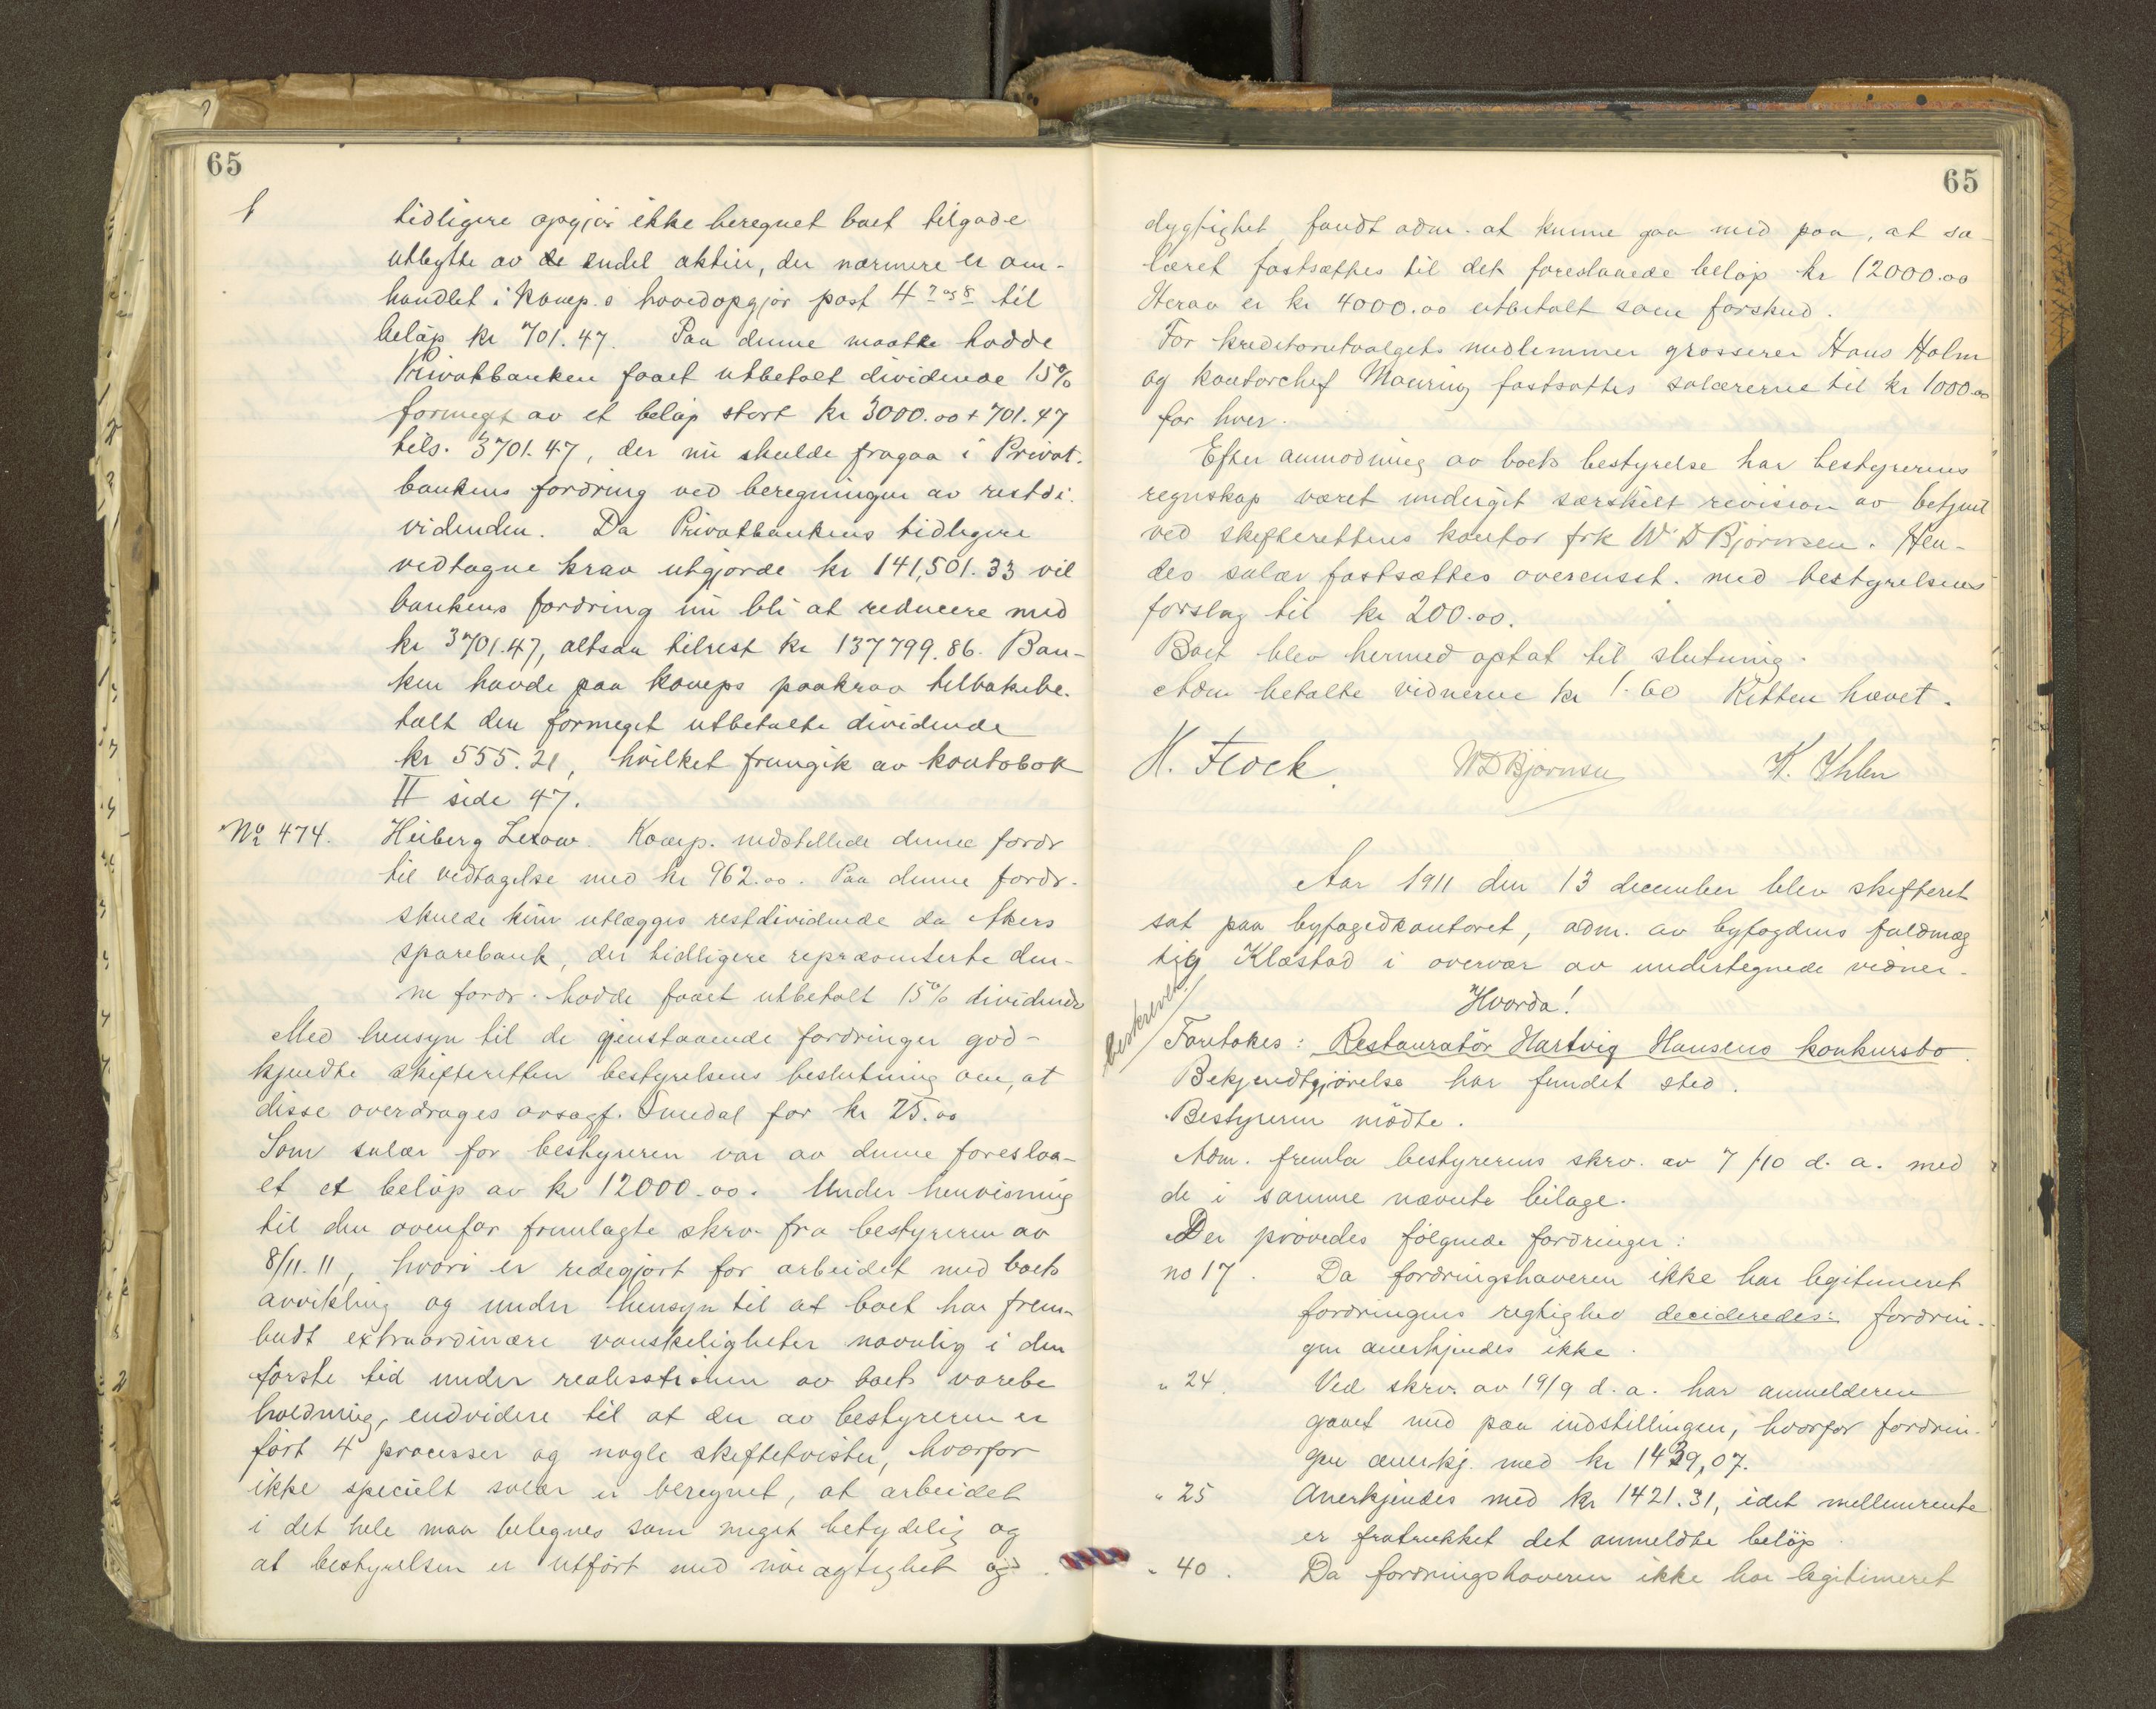 65
tidligere opgjör ikke beregnet boet tilgode
utbytte av endel aktier, der nærmere er om-
handlet i komp.s hovedopgjör post 4 7 og 8 til
belöp kr 701.47. Paa denne maate hadde
Privatbanken faaet utbetalt dividende 15%
formeget av et belöp stort kr 3000.00 + 701.47
tils. 3701.47, der nu skulde fragaa i Privat-
bankens fordring ved beregningen av restdi-
videnden. Da Privatbankens tidligere
vedtagne krav utgjorde kr 141,501.33 vil
bankens fordring nu bli at reducere med
kr 3701.47, altsaa tilrest kr 137799.86. Ban-
ken havde paa komps paakrav tilbakebe-
talt den formeget utbetalte dividende
kr 555.21, hvilket fremgik av kontobok
II side 47.
No 474. Heiberg Lexow. Komp. indstillede denne fordr
til vedtagelse med kr 962.00. Paa denne fordr.
skulde kun utlægges restdividende da Akers
sparebank, der tidligere repræsenterte den-
ne fordr. hadde faaet utbetalt 15% dividende
Med hensyn til de gjenstaaende fordringer god-
kjendte skifteretten bestyrelsens beslutning om, at
disse overdrages ovsagf. Smedal for kr 25.00
Som salær for bestyreren var av denne foreslaa-
et et belöp av kr 12000.00. Under henvisning
til den ovenfor fremlagte skrv. fra bestyreren av
8/11.11, hvori er redegjort for arbeidet med boets
avvikling og under hensyn til at boet har frem-
budt extraordinære vanskeligheter navnlig i den
förste tid under realisationen av boets varebe
holdning, endvidere til at der av bestyreren er
fört 4 processer og nogle skiftetvister, hvorfor
ikke specielt salær er beregnet, at arbeidet
i det hele maa betegnes som meget betydelig og
at bestyrelsen er utfört med nöiagtighet og
65
dygtighet fandt adm. at kunne gaa med paa, at sa-
læret fastsættes til det foreslaaede belöp kr 12000.00
Herav er kr 4000.00 utbetalt som forskud.
For kreditorutvalgets medlemmer grosserer Hans Holm
og kontorchef Mauring fastsattes salærerne til kr 1000.00
for hver.
Efter anmodning av boets bestyrelse har bestyrerens
regnskap været undergit særskilt revision av betjent
ved skifterettens kontor frk W D Bjørnsen. Hen-
des salær fastsættes overensst. med bestyrelsens
forslag til kr 200.00.
Boet blev hermed optat til slutning.
Adm betalte vidnerne kr 1.60 Retten hævet.
H. Flock. WDBjørnsen K. Ihlen
Aar 1911 den 13 december blev skifteret
sat paa byfogedkontoret, adm. av byfogdens fuldmæg
tig Klæstad i overvær av undertegnede vidner.
Hvorda!
beskreven
Foretokes: Restauratör Hartvig Hansens konkursbo.
Bekjendtgjörelse har fundet sted.
Bestyreren mödte.
Adm. fremla bestyrerens skrv. av 7/10 d. a. med
de i samme nævnte bilage.
Der prövedes fölgende fordringer:
no 17. Da fordringshaveren ikke har legitimeret
fordringens rigtighed decideredes: fordrin-
gen anerkjendes ikke.
" 24. Ved skrv. av 19/9 d. a. har anmelderen
gaaet med paa indstillingen, hvorfor fordrin-
gen anerkj. med kr 1439,07.
" 25 Anerkjendes med kr 1421.31, idet mellemrente
er fratrukket det anmeldte belöp.
" 40. Da fordringshaveren ikke har legitimeret